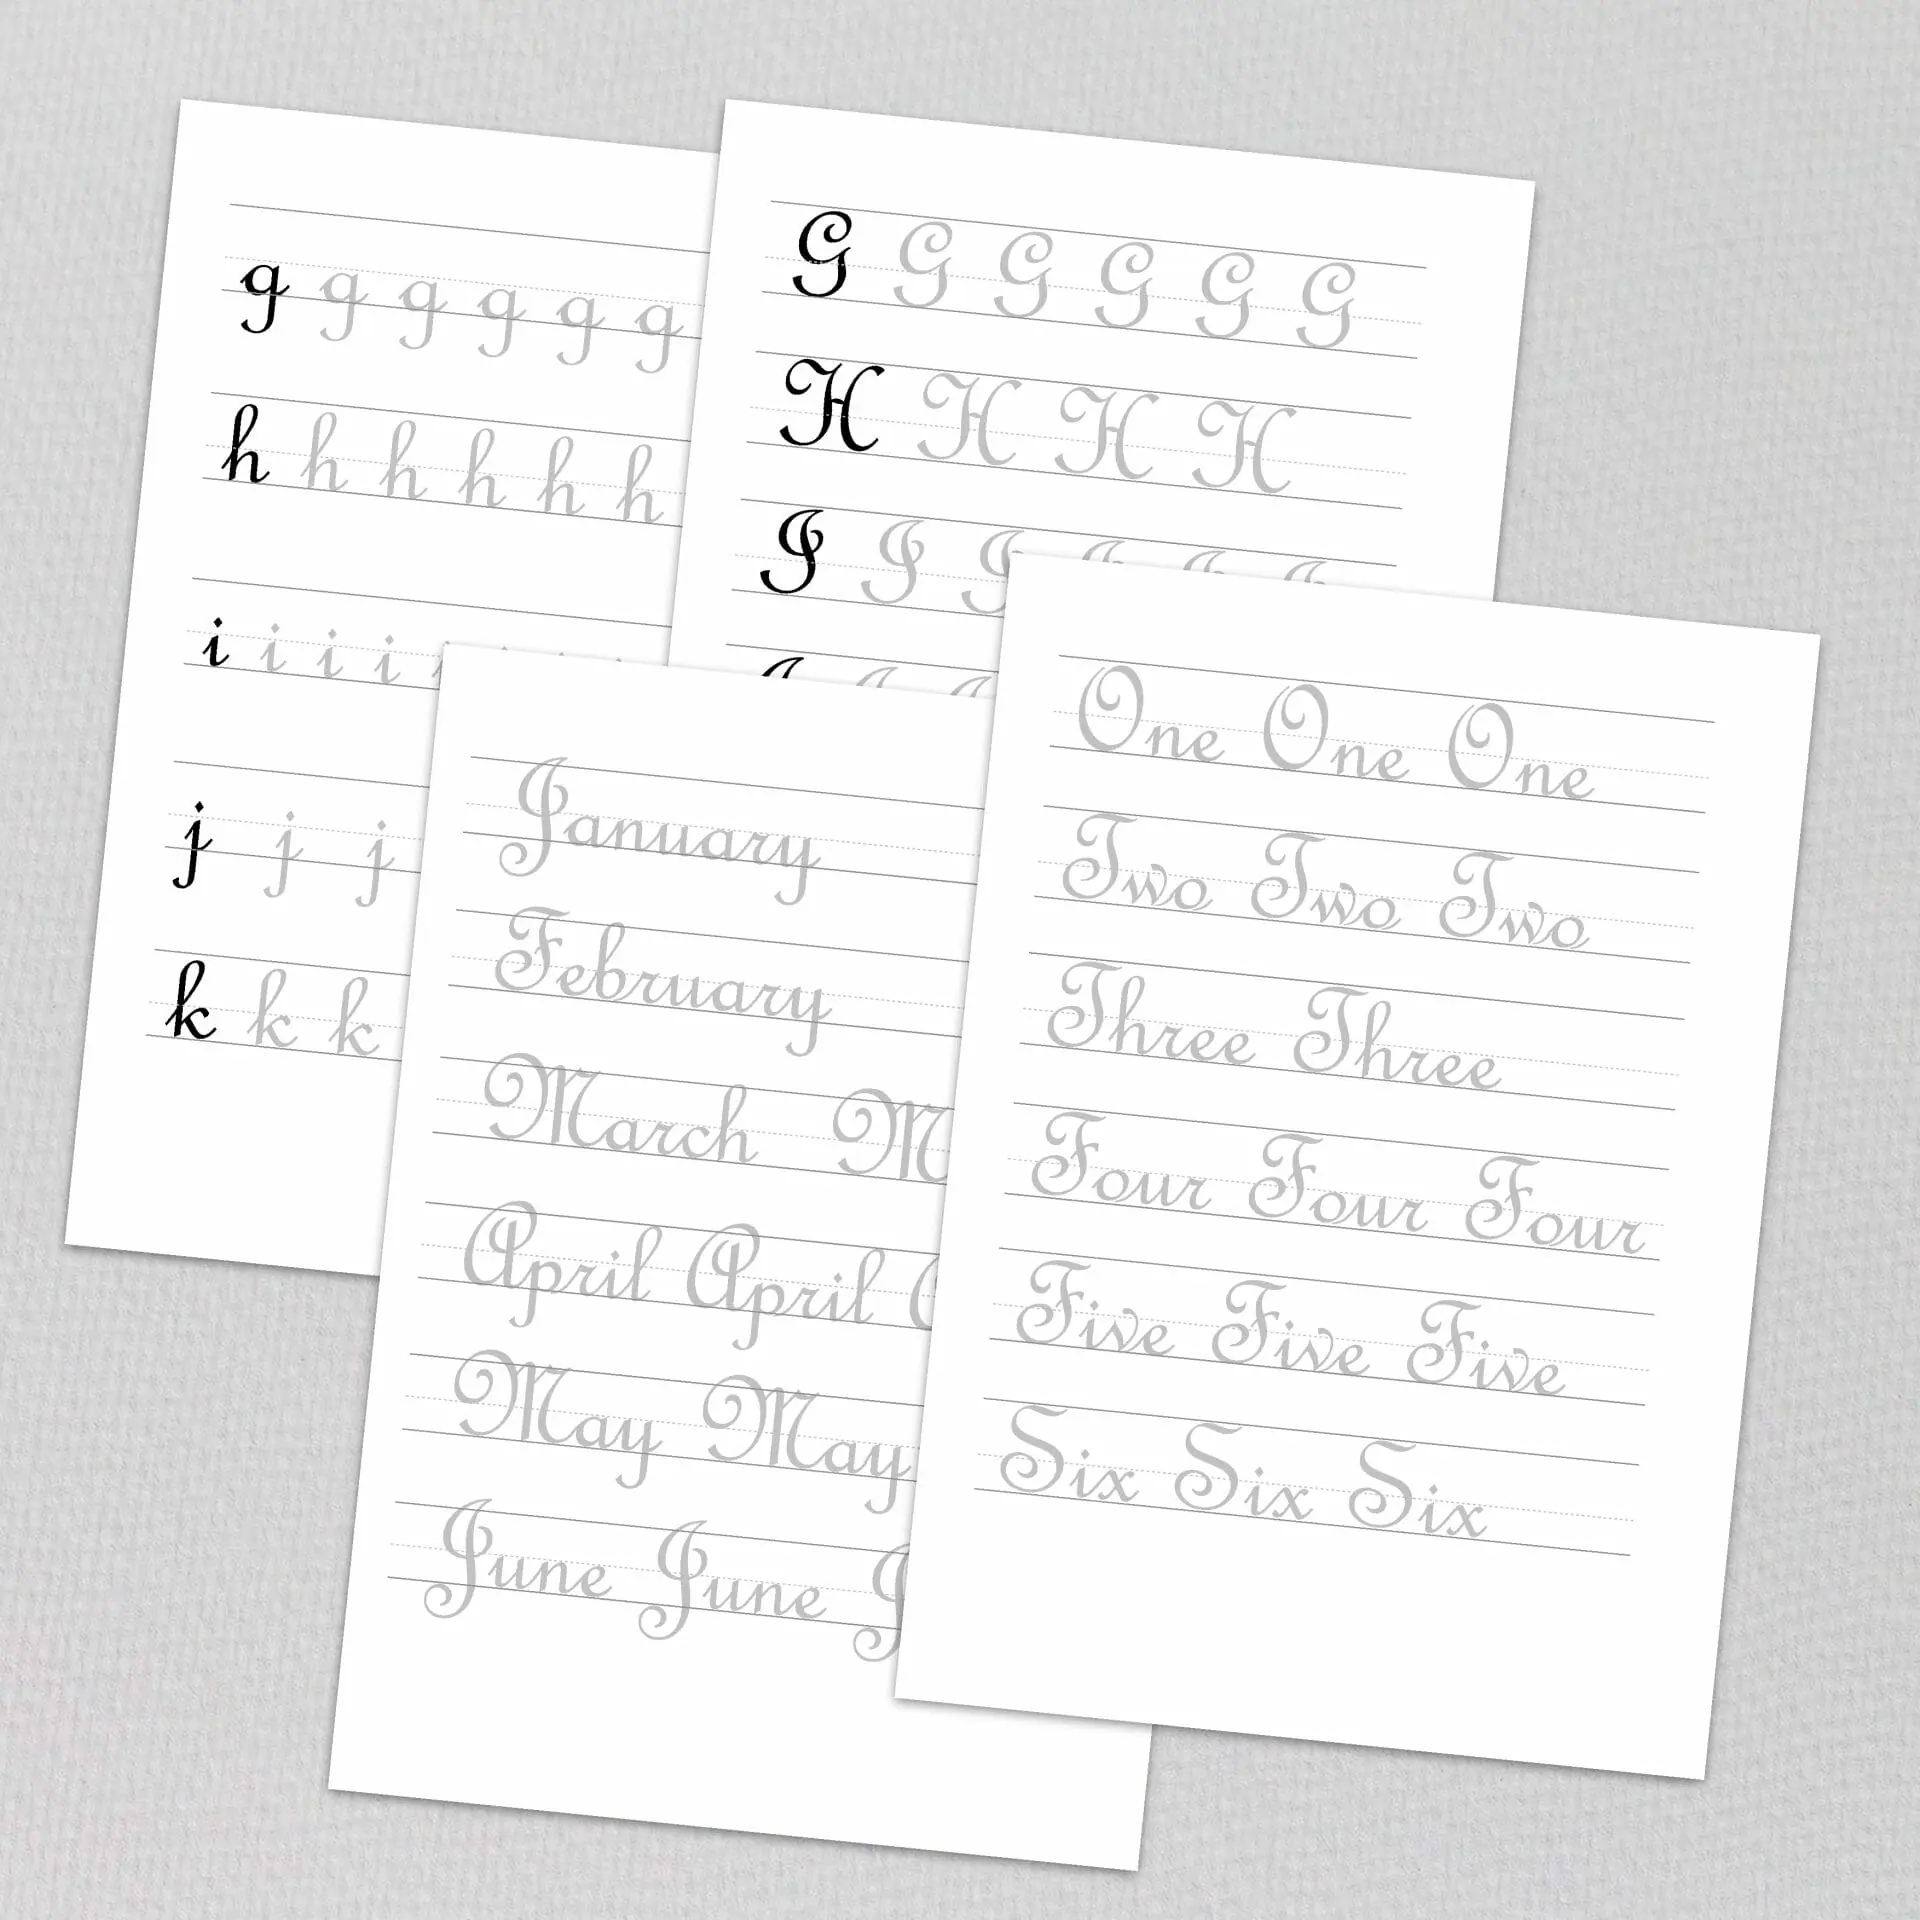 g g g g g g
h h h h h h
i i i i
j j j
k k k
G G G G G G
H H H H
I I I
January
February
March M
April April
May May
June June
One One One
Two Two Two
Three Three
Four Four Four
Five Five Five
Six Six Six